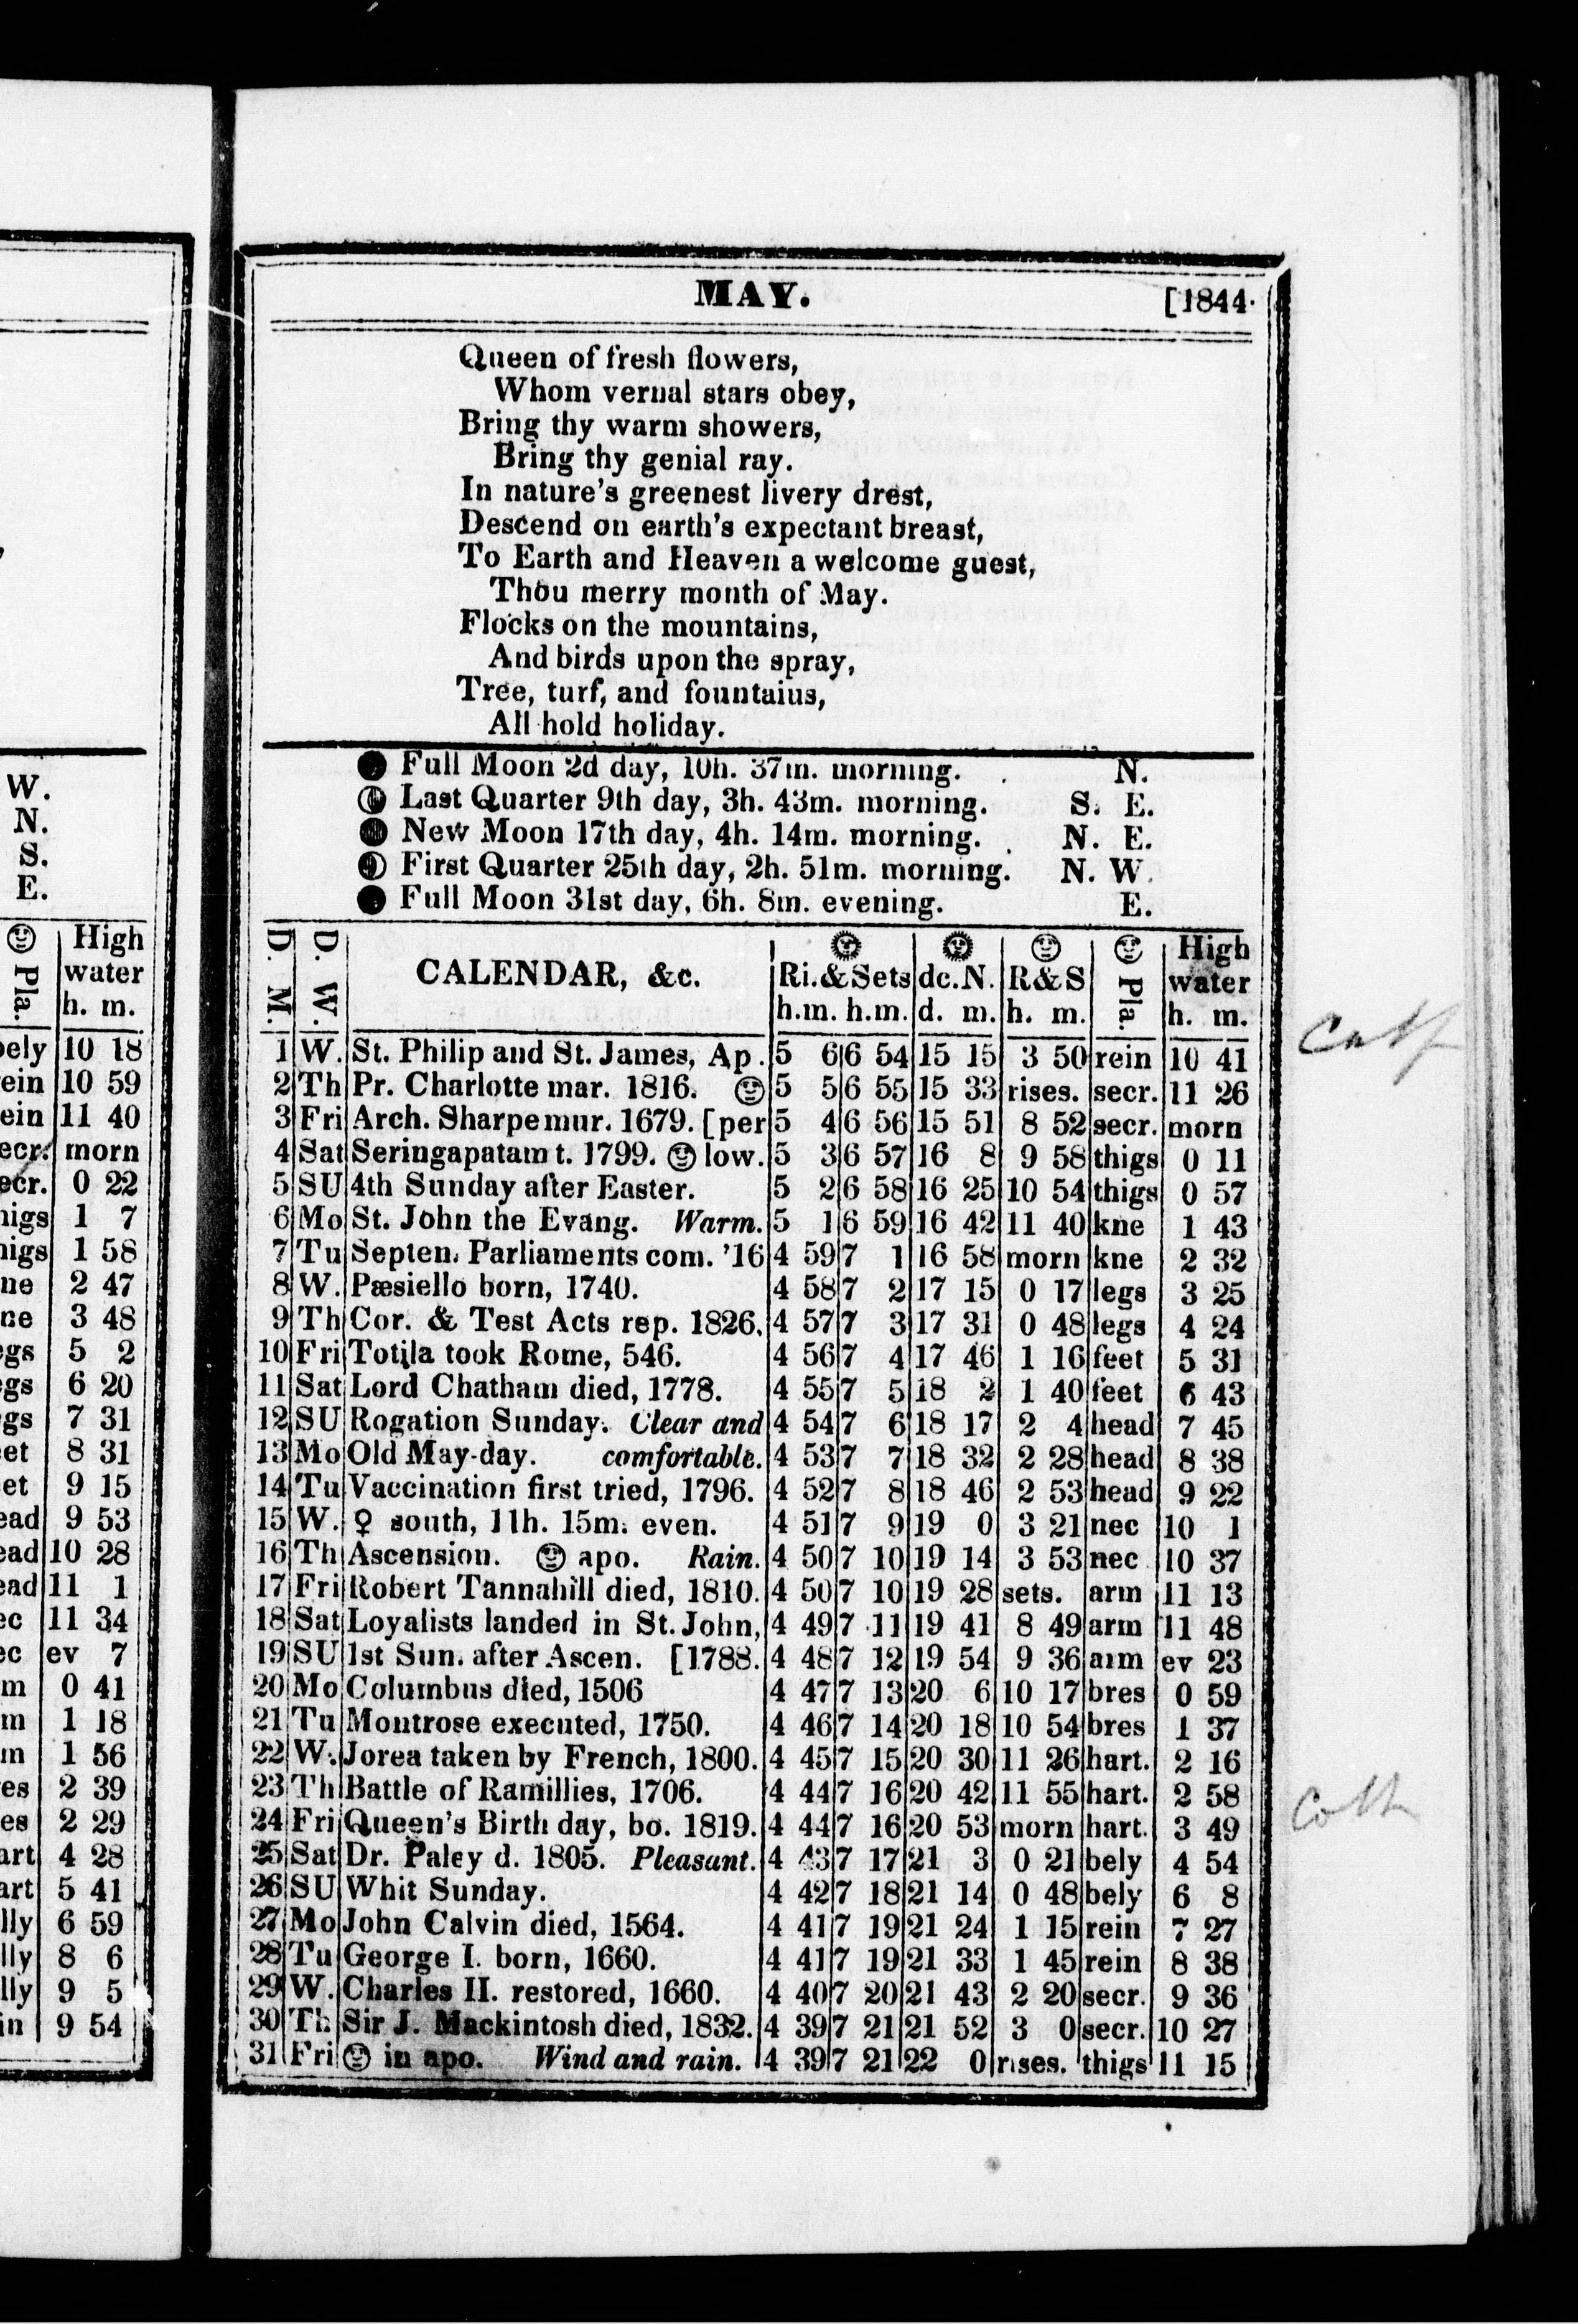 MAY. [1844.
Queen of fresh flowers,
Whom vernal stars obey,
Bring thy warm showers,
Bring thy genial ray.
In nature's greenest livery drest,
Descend on earth's expectant breast,
To Earth and Heaven a welcome guest,
Thou merry month of May.
Flocks on the mountains,
And birds upon the spray,
Tree, turf, and fountaius,
All hold holiday.
Full Moon 2d day, 10h. 37m. morning. N.
Last Quarter 9th day, 3h. 43m. morning. S. E.
New Moon 17th day, 4h. 14m. morning. N. E.
First Quarter 25th day, 2h. 51m. morning. N. W.
Full Moon 31st day, 6h. 8m. evening. E.
D. M. D. W. CALENDAR, &c. Ri.&Sets dc.N. R&S Pla. High water
h.m. h.m. d. m. h. m. h. m.
1 W. St. Philip and St. James, Ap. 5 6 6 54 15 15 3 50 rein 10 41
2 Th Pr. Charlotte mar. 1816. ☺ 5 5 6 55 15 33 rises. secr. 11 26
3 Fri Arch. Sharpe mur. 1679. [per 5 4 6 56 15 51 8 52 secr. morn
4 Sat Seringapatam t. 1799. ☺ low. 5 3 6 57 16 8 9 58 thigs 0 11
5 SU 4th Sunday after Easter. 5 2 6 58 16 25 10 54 thigs 0 57
6 Mo St. John the Evang. Warm. 5 1 6 59 16 42 11 40 kne 1 43
7 Tu Septen. Parliaments com. '16 4 59 7 1 16 58 morn kne 2 32
8 W. Pæsiello born, 1740. 4 58 7 2 17 15 0 17 legs 3 25
9 Th Cor. & Test Acts rep. 1826. 4 57 7 3 17 31 0 48 legs 4 24
10 Fri Totila took Rome, 546. 4 56 7 4 17 46 1 16 feet 5 31
11 Sat Lord Chatham died, 1778. 4 55 7 5 18 2 1 40 feet 6 43
12 SU Rogation Sunday. Clear and 4 54 7 6 18 17 2 4 head 7 45
13 Mo Old May-day. comfortable. 4 53 7 7 18 32 2 28 head 8 38
14 Tu Vaccination first tried, 1796. 4 52 7 8 18 46 2 53 head 9 22
15 W. ♀ south, 11h. 15m. even. 4 51 7 9 19 0 3 21 nec 10 1
16 Th Ascension. ☺ apo. Rain. 4 50 7 10 19 14 3 53 nec 10 37
17 Fri Robert Tannahill died, 1810. 4 50 7 10 19 28 sets. arm 11 13
18 Sat Loyalists landed in St. John, 4 49 7 11 19 41 8 49 arm 11 48
19 SU 1st Sun. after Ascen. [1788. 4 48 7 12 19 54 9 36 arm ev 23
20 Mo Columbus died, 1506 4 47 7 13 20 6 10 17 bres 0 59
21 Tu Montrose executed, 1750. 4 46 7 14 20 18 10 54 bres 1 37
22 W. Jorea taken by French, 1800. 4 45 7 15 20 30 11 26 hart. 2 16
23 Th Battle of Ramillies, 1706. 4 44 7 16 20 42 11 55 hart. 2 58
24 Fri Queen's Birth day, bo. 1819. 4 44 7 16 20 53 morn hart. 3 49
25 Sat Dr. Paley d. 1805. Pleasant. 4 43 7 17 21 3 0 21 bely 4 54
26 SU Whit Sunday. 4 42 7 18 21 14 0 48 bely 6 8
27 Mo John Calvin died, 1564. 4 41 7 19 21 24 1 15 rein 7 27
28 Tu George I. born, 1660. 4 41 7 19 21 33 1 45 rein 8 38
29 W. Charles II. restored, 1660. 4 40 7 20 21 43 2 20 secr. 9 36
30 Th Sir J. Mackintosh died, 1832. 4 39 7 21 21 52 3 0 secr. 10 27
31 Fri ☺ in apo. Wind and rain. 4 39 7 21 22 0 rises. thigs 11 15
W.
N.
S.
E.
Pla. High water
h. m.
10 18
10 59
11 40
morn
0 22
1 7
1 58
2 47
3 48
5 2
6 20
7 31
8 31
9 15
9 53
10 28
11 1
11 34
ev 7
0 41
1 18
1 56
2 39
2 29
4 28
5 41
6 59
8 6
9 5
9 54